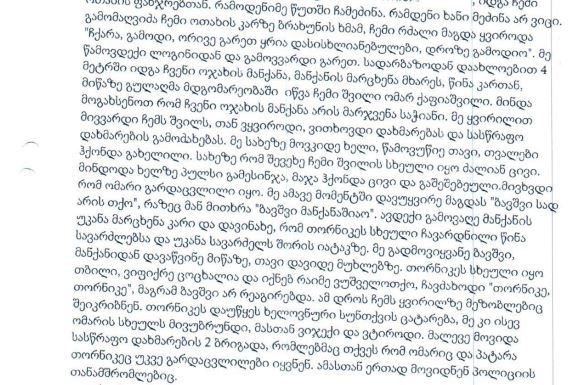 ფანჯრებთან. რამოდენიმე წუთში ჩამეძინა. რამდენი ხანი მეძინა არ ვიცი.
გამომაღვიძა ჩემი ოთახის კარზე ბრახუნის ხმამ, ჩემი რძალი მაგდა ყვიროდა
"ჩქარა, გამოდი, ორივე გარეთ ყრია დასისხლიანებულები, დროზე გამოდიო". მე
წამოვდექი ლოგინიდან და გამოვვარდი გარეთ. სადარბაზოდან დაახლოებით 4
მეტრში იდგა ჩვენი ოჯახის მანქანა, მანქანის მარცხენა მხარეს, წინა კართან,
მიწაზე გულაღმა მდგომარეობაში იწვა ჩემი შვილი ომარ ქაფიაშვილი. მინდა
მოგახსენოთ რომ ჩვენი ოჯახის მანქანა არის მარჯვენა საჭიანი. მე ყვირილით
მივვარდი ჩემს შვილს, თან ვყვიროდი, ვითხოვდი დახმარებას და სასწრაფო
დახმარების გამოძახებას. მე სახეზე მოვკიდე ხელი, წამოვუწიე თავი, თვალები
ჰქონდა გახელილი. სახეზე რომ შევეხე ჩემი შვილის სხეული იყო ძალიან ცივი.
მინდოდა ხელზე პულსი გამესინჯა, მაჯა ჰქონდა ცივი და გაშეშებული.მივხვდი
რომ ომარი გარდაცვლილი იყო. მე ამავე მომენტში დავუყვირე მაგდას "ბავშვი სად
არის თქო", რაზეც მან მითხრა "ბავშვი მანქანაშიაო". ავდექი გამოვაღე მანქანის
უკანა მარცხენა კარი და დავინახე, რომ თორნიკეს სხეული ჩავარდნილი წინა
სავარძლებსა და უკანა სავარძელს შორის იატაკზე. მე გადმოვიყვანე ბავშვი,
მანქანიდან დავაწვინე მიწაზე, თავი დავიდე მუხლებზე. თორნიკეს სხეული იყო
თბილი, ვიფიქრე ცოცხალია და იქნებ რაიმე ვუშველოთქო, ჩავძახოდი "თორნიკე,
თორნიკე", მაგრამ ბავშვი არ რეაგირებდა. ამ დროს ჩემს ყვირილზე მეზობლებიც
შეიკრიბნენ. თორნიკეს დაუწყეს ხელოვნური სუნთქვის ცატარება, მე კი ისევ
ომარის სხეულს მივუბრუნდი, მასთან ვიჯექი და ვტიროდი. მალევე მოვიდა
სასწრაფო დახმარების 2 ბრიგადა, რომლებმაც თქვეს რომ ომარიც და პატარა
თორნიკეც უკვე გარდაცვლილები იყვნენ. ამასთან ერთად მოვიდნენ პოლიციის
თანამშრომლებიც.